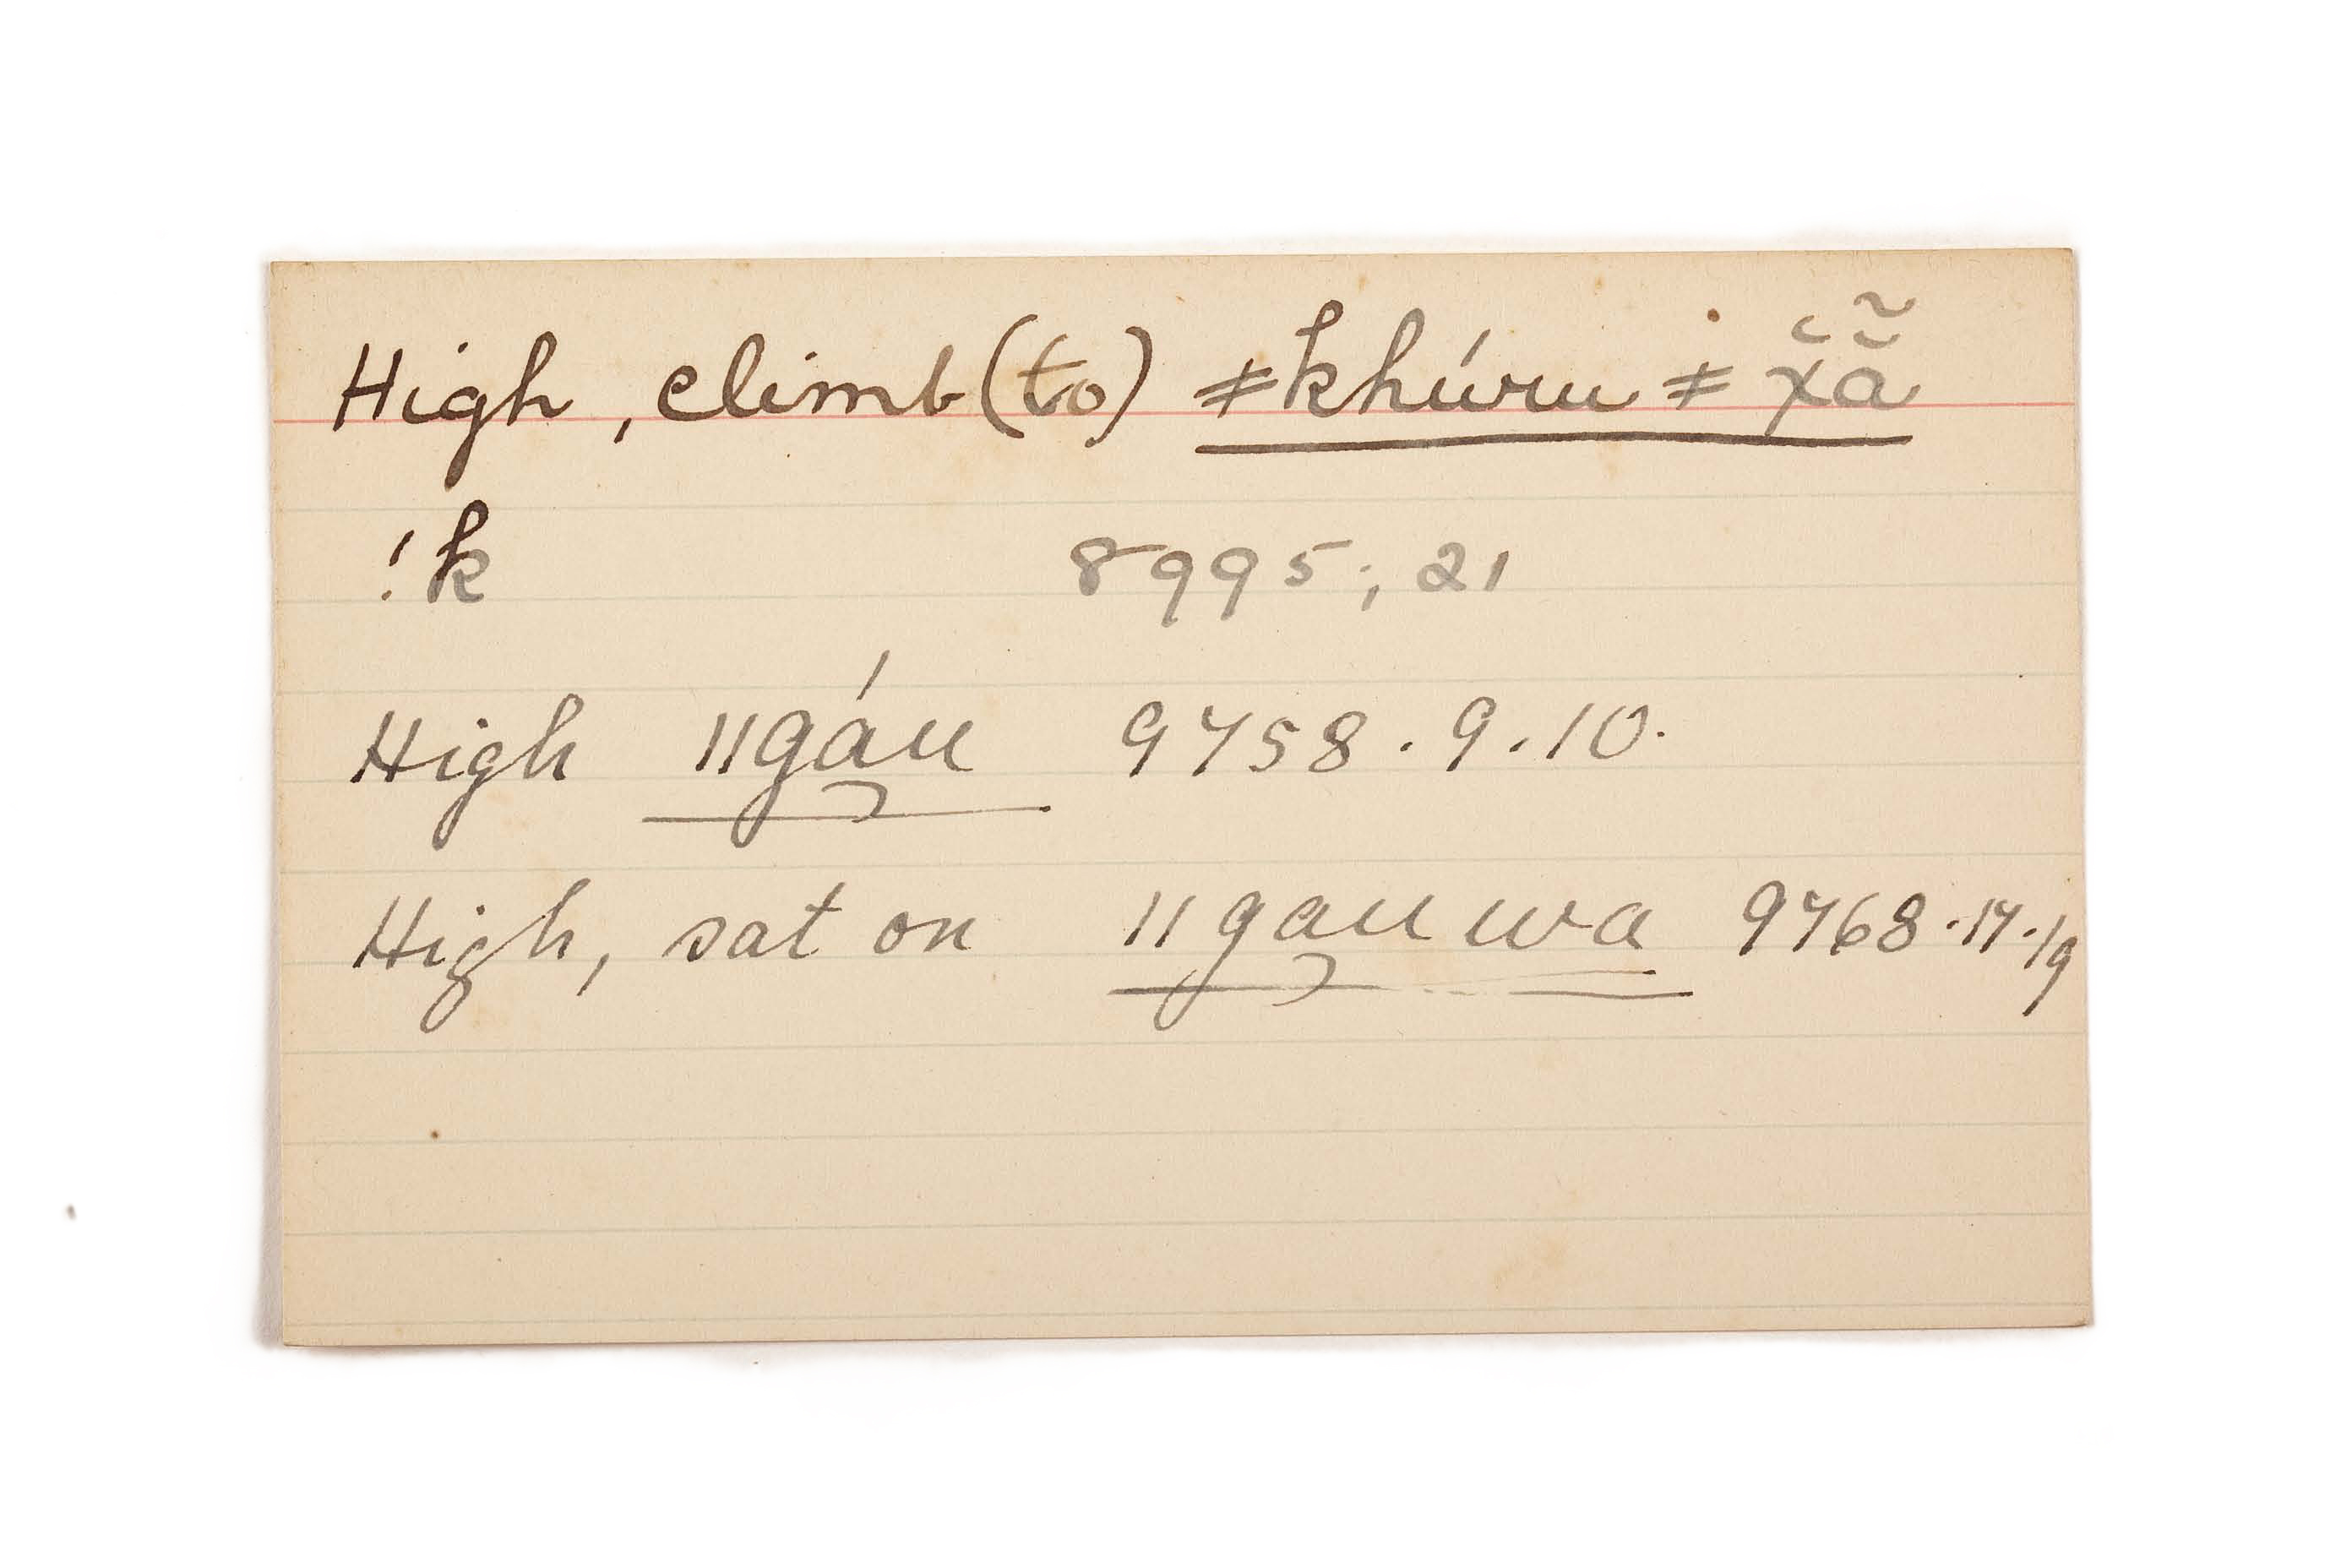 High, climb (to) ǂkhúru ǂx̆ã̆
!k 8995; 21
High ǁgáu 9758. 9.10.
High, sat on ǁgau wa 9768.17.19